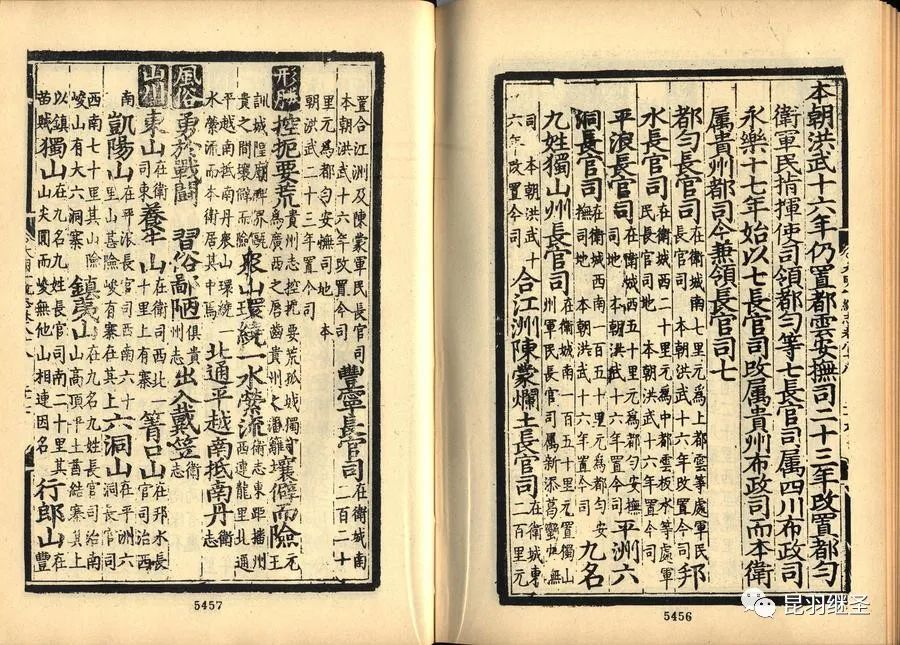 本朝洪武十六年仍置都雲安撫司二十三年改置都勻
衛軍民指揮使司領都勻等七長官司屬四川布政司
永樂十七年始以七長官司改屬貴州布政司而本衛
屬貴州都司今兼領長官司七
都勻長官司在衛城南七里元為上都雲等處軍民長官司 本朝洪武十六年改置今司邦
水長官司在衛城西二十里元為中都雲板水等處軍民長官司地 本朝洪武十六年置今司
平浪長官司在衛城西五十里元為都勻安撫司地 本朝洪武十六年置今司平洲六
洞長官司在衛城西南一百五十里元為都勻安撫司地 本朝洪武十六年置今司九名
九姓獨山州長官司在衛城南一百五十里元置獨山州軍民長官司屬新添葛蠻
司 本朝洪武十六年改置今司合江洲陳蒙爛土長官司在衛城東二百里元
5456
置合江洲及陳蒙軍民長官司 本朝洪武十六年改置今司豐寧長官司在衛城南二百二十
里元為都勻安撫司地 本朝洪武二十三年置今司
形勝控扼要荒貴州志控扼要荒孤城獨守為廣西之唇齒貴州之藩籬壤僻而險元王
訓城隍廟碑界貴之間壤僻而險衆山環繞一水縈流衛志東距播州西連龍里北通
平越南抵南丹衆山環繞一水縈流而本衛居其中焉北通平越南抵南丹衛志
風俗勇於戰鬪 習俗鄙陋俱貴州志出入戴笠衛志
山川東山在衛司東養牛山在衛司西北一十里上有寨箐口山在邦水長官司治西
南凱陽山在平浪長官司西南六十里山甚險峻有寨在其上六洞山在平洲六洞長官司
西南七十里其山險峻山有大六洞寨鎮夷山在九名九姓長官司治南山高頂平土酋結寨其上
以鎮苗賊獨山在九名九姓長官司南二十里其山尖圓而峻無他山相連因名行郎山豐
5457
昆羽继圣